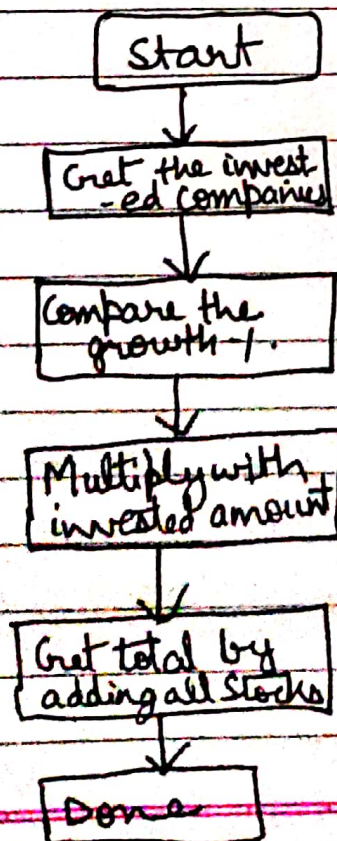 Start
Get the invest
-ed Companies
Compare the
growth %.
Multiply with
invested amount
Get total by
adding all Stocks
Done